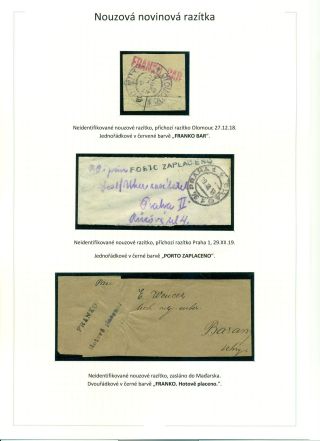 Nouzová novinová razítka
FRANKO BAR
Neidentifikované nouzové razítko, příchozí razítko Olomouc 27.12.18.
Jednořádkové v červené barvě „FRANKO BAR“.
PORTO ZAPLACENO
PRAHA 1
Praha II.
Neidentifikované nouzové razítko, příchozí razítko Praha 1, 29.XII.19.
Jednořádkové v černé barvě „PORTO ZAPLACENO“.
Pan
E. Wencer
FRANKO
Hotově placeno.
Baran
Neidentifikované nouzové razítko, zasláno do Maďarska.
Dvouřádkové v černé barvě „FRANKO. Hotově placeno.“.